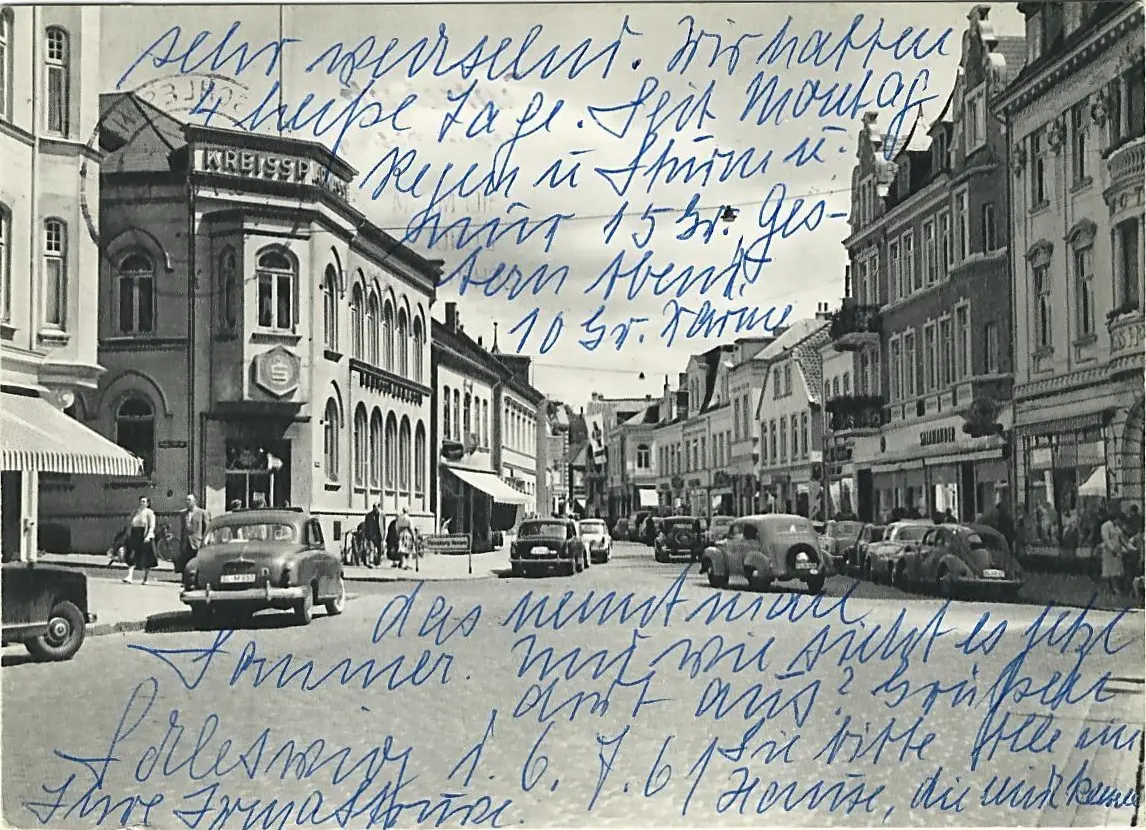 sehr wechselnd. Wir hatten
4 heiße Tage. Seit Montag
Regen u Sturm u.
nur 15 Gr. Ges-
tern Abend
10 Gr. Wärme
KREISSP
SALAMANDER
das nennt man
Sommer. Und wie sieht es jetzt
dort aus? Grüßen
Sie bitte Alle im
Hause, die mich kennen
Schleswig, d. 6. 7. 61
Ihre Irma